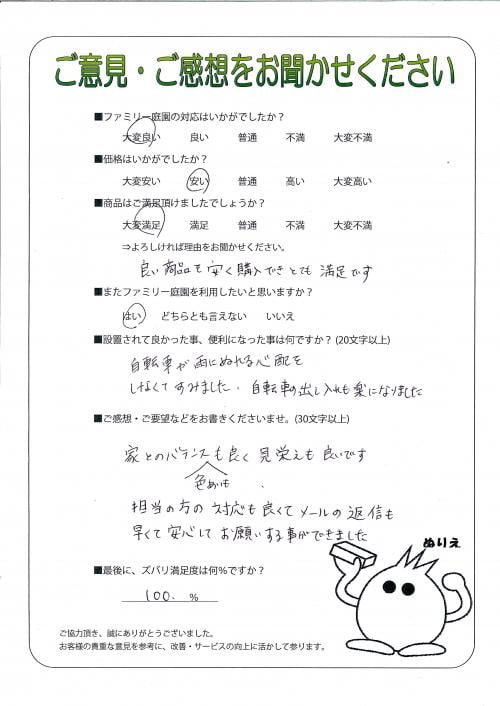 ご意見・ご感想をお聞かせください
■ファミリー庭園の対応はいかがでしたか？
大変良い 良い 普通 不満 大変不満
■価格はいかがでしたか？
大変安い 安い 普通 高い 大変高い
■商品はご満足頂けましたでしょうか？
大変満足 満足 普通 不満 大変不満
⇒よろしければ理由をお聞かせください。
良い商品を安く購入できとても満足です
■またファミリー庭園を利用したいと思いますか？
はい どちらとも言えない いいえ
■設置されて良かった事、便利になった事は何ですか？(20文字以上)
自転車が雨にぬれる心配を
しなくてすみました．自転車の出し入れも楽になりました
■ご感想・ご要望などをお書きくださいませ。(30文字以上)
家とのバランスも良く見栄えも良いです
色あいも、
担当の方の対応も良くてメールの返信も
早くて安心してお願いする事ができました
ぬりえ
■最後に、ズバリ満足度は何％ですか？
100. ％
ご協力頂き、誠にありがとうございました。
お客様の貴重な意見を参考に、改善・サービスの向上に活かして参ります。